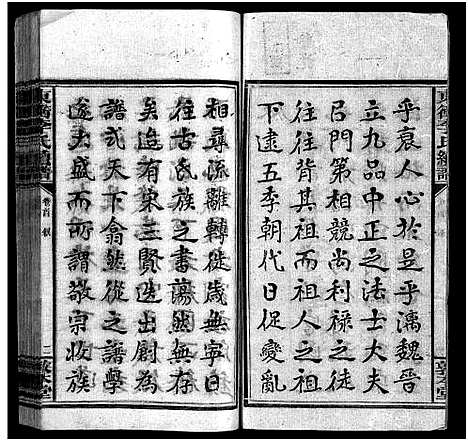 乎衰人心於是乎漓魏晉
立九品中正之法士大夫
呂門第相競尚利祿之徒
往往背其祖而祖人之祖
下逮五季朝代日促變亂
相尋流離轉徙歲無寧日
往古氏族之書蕩然無存
矣迨有宋三賢迭出尉為
譜式天下翕然從之譜學
遂大盛而所謂敬宗收族
卷首